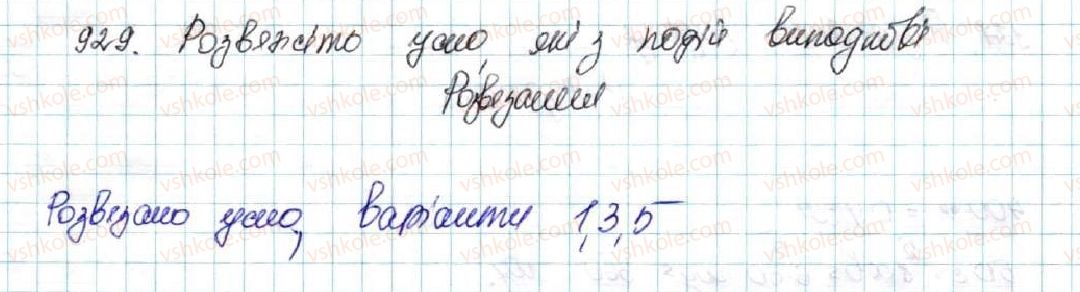 929. Розвяжіто усно, які з подій виподкові
Розвезання
Розвезано усно, варіанти 1,3,5